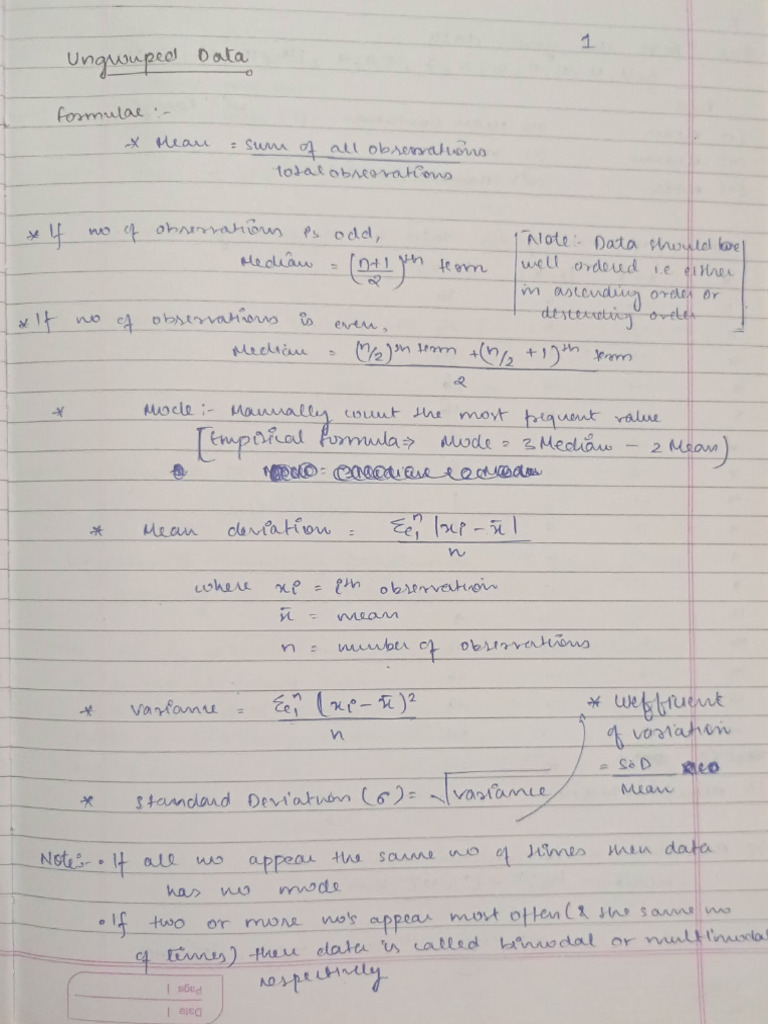 1
Ungrouped Data
Formulae :-
* Mean = sum of all observations
total observations
* If no of observations is odd,
Median = (n+1/2)th term
Note:- Data should be
well ordered i.e either
in ascending order or
descending order
* If no of observations is even,
Median = (n/2)th term + (n/2 + 1)th term
2
* Mode :- Manually count the most frequent value
[Empirical formula ⇒ Mode = 3 Median - 2 Mean)
* Mean deviation = Σi=1^n |xi - x̄|
n
where xi = ith observation
x̄ = mean
n = number of observations
* Variance = Σi=1^n (xi - x̄)²
n
* Standard Deviation (σ) = √variance
* Coefficient
of variation
= S.D
Mean
Note:- • If all no appear the same no of times then data
has no mode
• If two or more no's appear most often (& the same no
of times) then data is called bimodal or multimodal
respectively
Page
Date